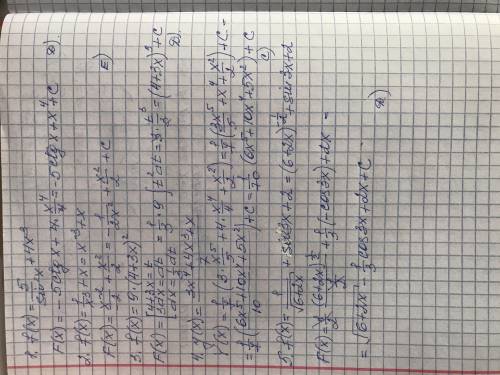 1. f(x) = 5/sin²x + 4x³
F(x) = -5ctgx + 4·x⁴/4 = -5ctgx + x⁴ + C D).
2. f(x) = 1/x³ + x = x⁻³ + x
F(x) = x⁻²/-2 + x²/2 = -1/2x² + x²/2 + C E)
3. f(x) = 9·(4+3x)²
F(x) = [4+3x=t 3dx=dt dx=1/3dt] = 1/3·9∫t²dt = 3·t³/3 = (4+3x)³ + C
D).
4. y(x) = 3x⁴+4x³+x/7
Y(x) = 1/7(3·x⁵/5 + 4·x⁴/4 + x²/2) = 1/7(3x⁵/5 + x⁴ + x²/2) + C =
= 1/7(6x⁵+10x⁴+5x²/10) + C = 1/70(6x⁵+10x⁴+5x²) + C
C)
5. f(x) = 1/√6+2x + sin3x + 2 = (6+2x)^-1/2 + sin3x + 2
F(x) = 1/2 (6+2x)^1/2/1/2 + 1/3(-cos3x) + 2x =
= √6+2x - 1/3cos3x + 2x + C.